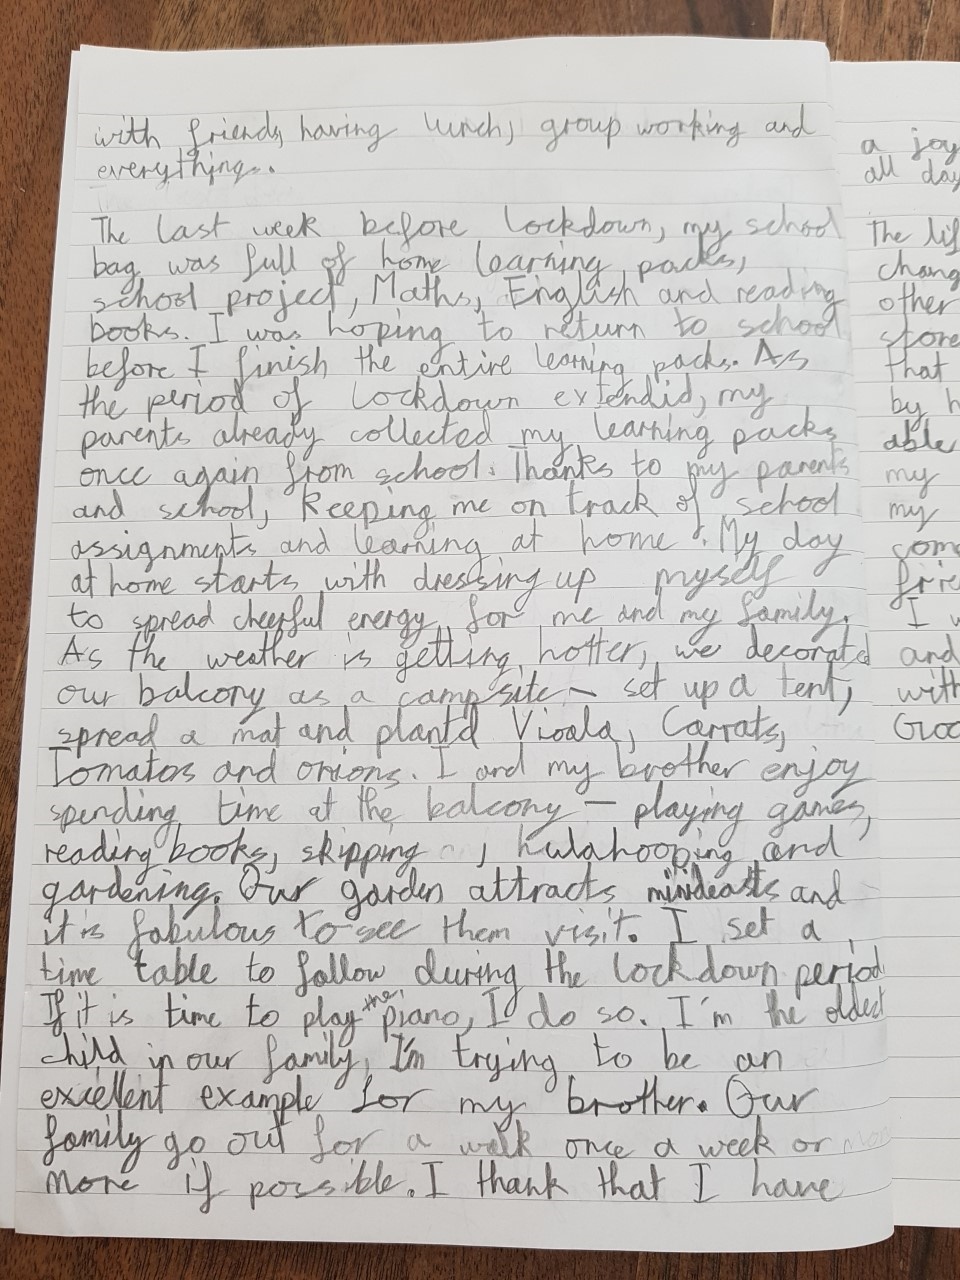 with friends, having lunch, group working and
everything..
The last week before lockdown, my school
bag was full of home learning packs,
school project, Maths, English and reading
books. I was hoping to return to school
before I finish the entire learning packs. As
the period of lockdown extendid, my
parents already collected my learning packs
once again from school. Thanks to my parents
and school, keeping me on track of school
assignments and learning at home. My day
at home starts with dressing up myself
to spread cheerful energy for me and my family.
As the weather is getting hotter, we decorated
our balcony as a camp site – set up a tent,
spread a mat and plant'd Vioala, Carrats,
Tomatos and onions. I and my brother enjoy
spending time at the balcony – playing games,
reading books, skipping , hulahooping and
gardening. Our garden attracts and
it is fabulous to see them visit. I set a
time table to follow during the lockdown period
If it is time to play the piano, I do so. I'm the oldest
child in our family, I'm trying to be an
excellent example for my brother. Our
family go out for a walk once a week or
more if possible. I thank that I have
a joy
all day
The lif
chang
other
store
that
by h
able
my
my
com
frie
I w
and
with
Goo